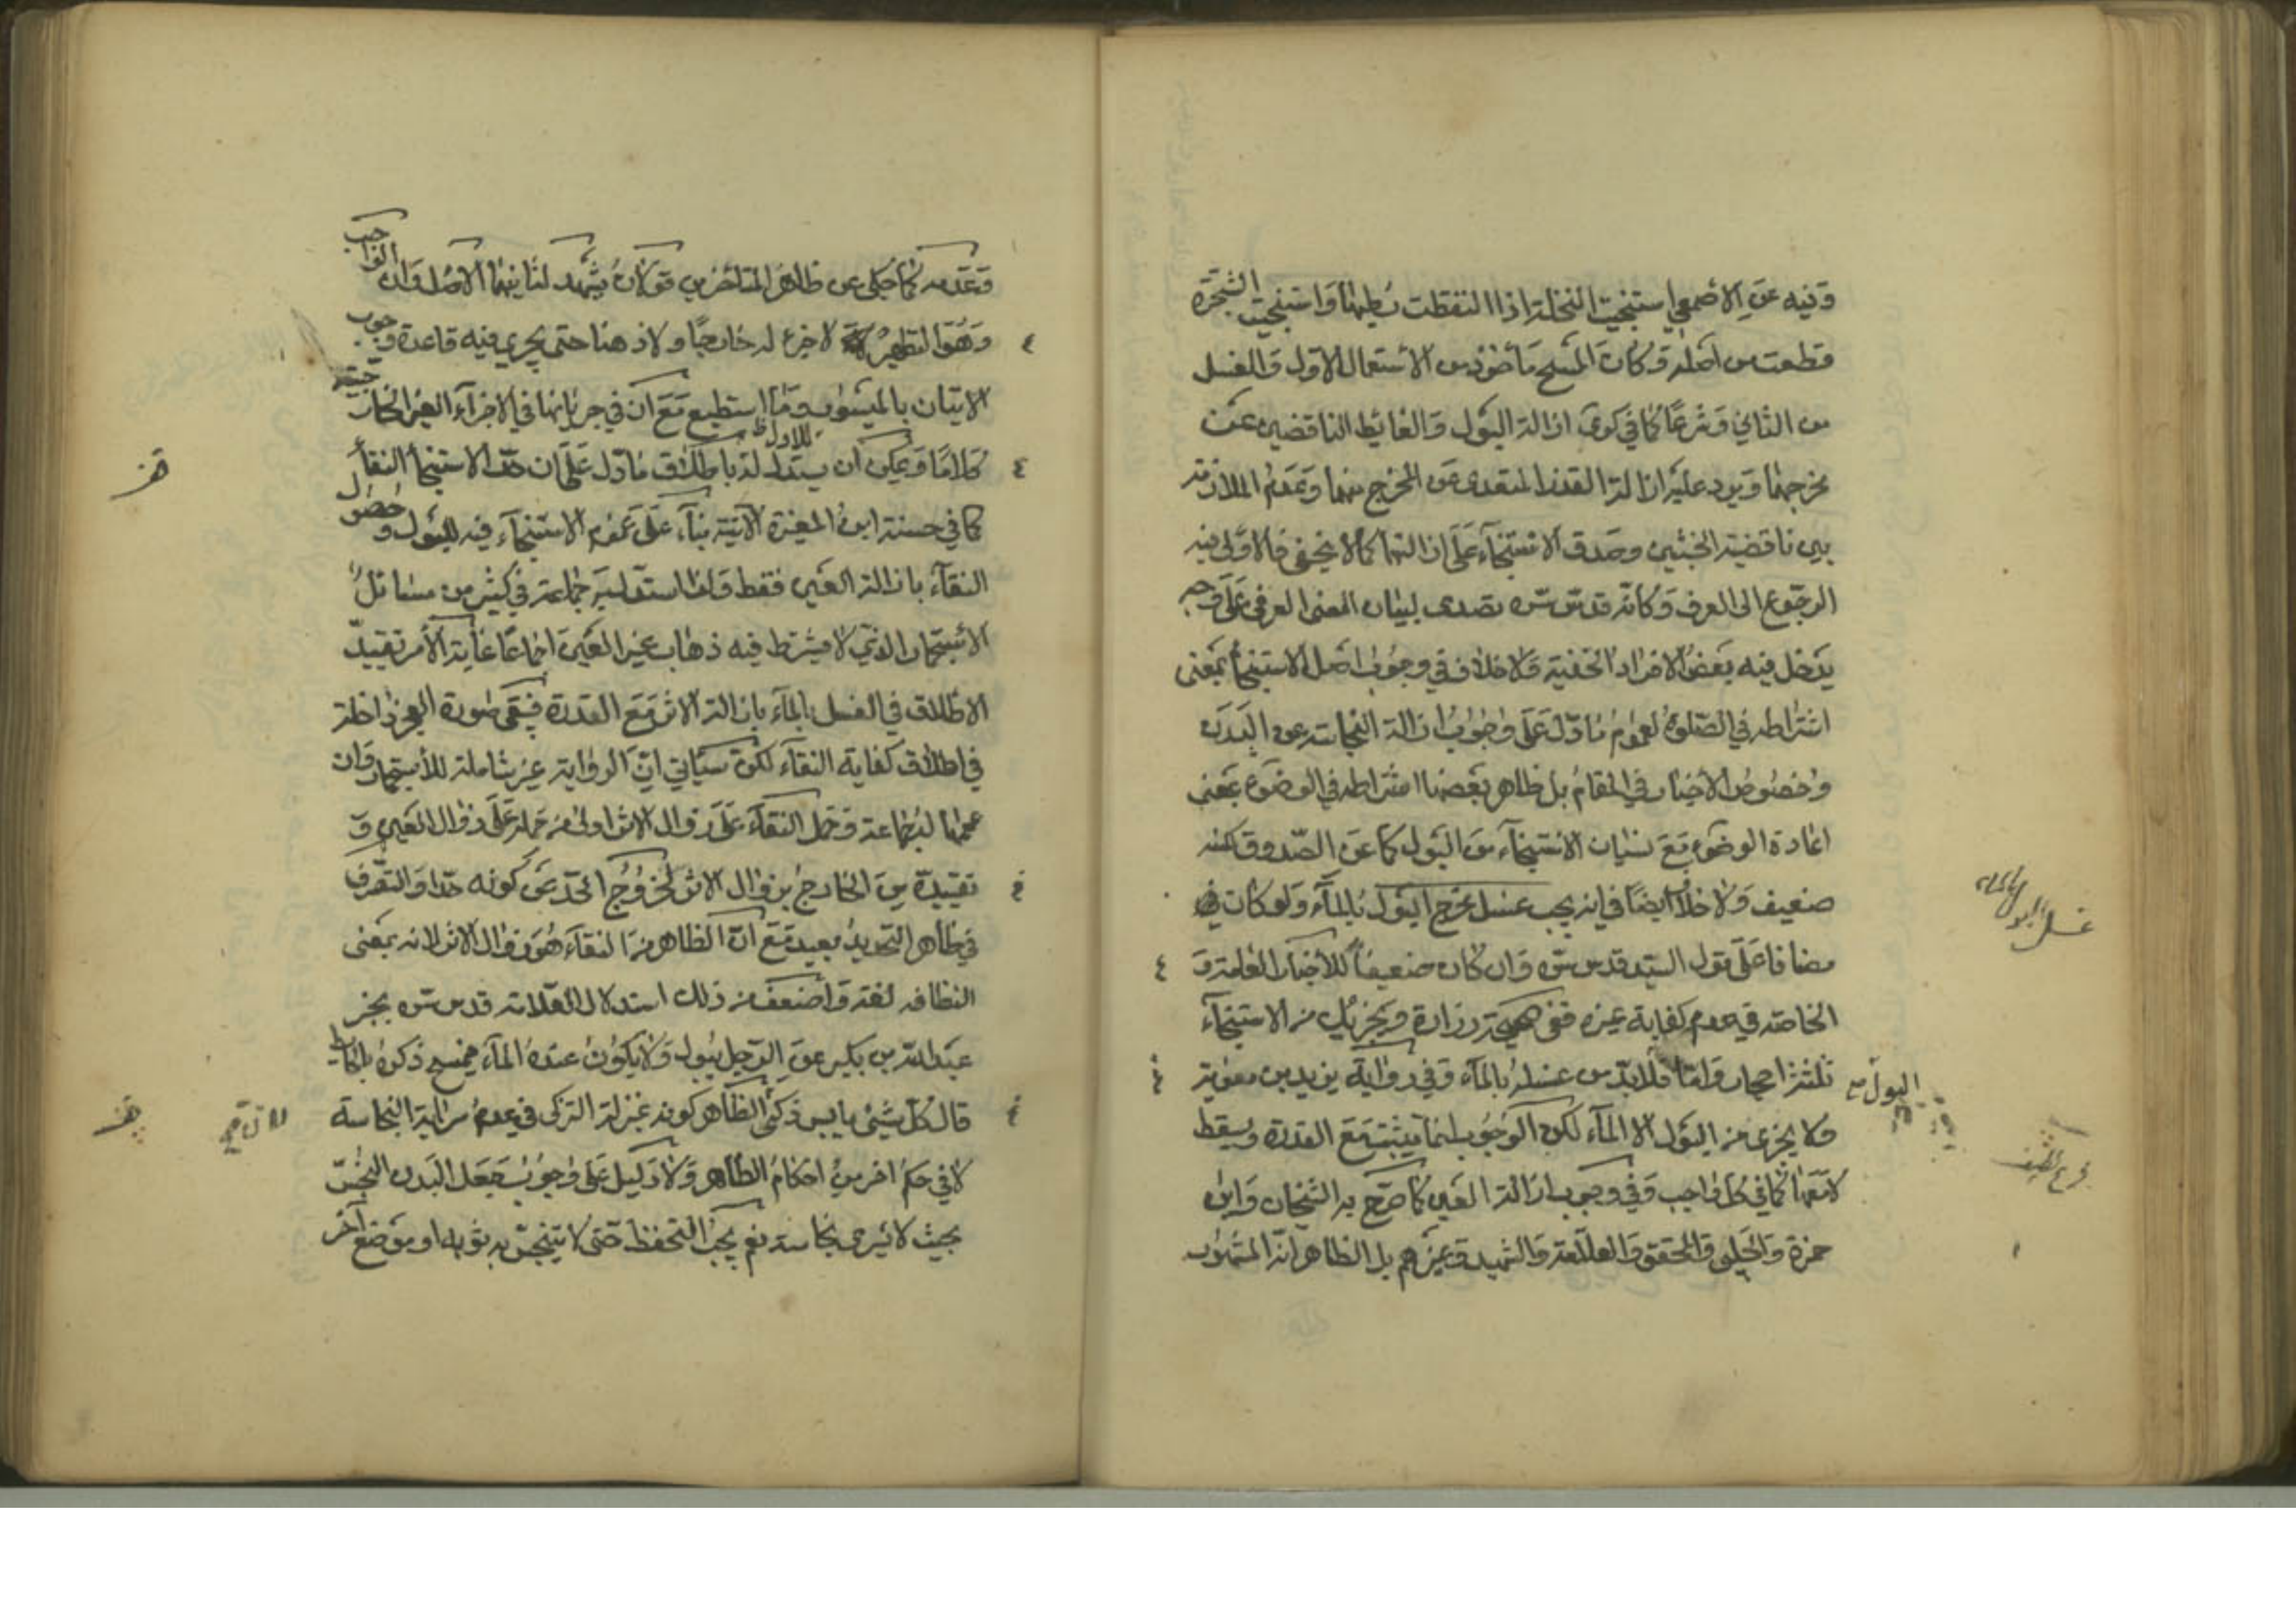 وفيه عن الأصمعي استنجيت النخلة اذا التقطت رطبها واستنجيت الشجرة
قطعت من اصله وكان المسح مأخوذ من الاستعمال الاول والغسل
من الثاني وشرعًا كما في كو ازالة البول والغائط الناقضين عن
مخرجهما ويرد عليه ازالة القذر المتعدى عن المخرج منهما وعدم الملازمة
بين ناقضية الخبثين وصدق الاستنجآء على ازالتهما كما لا يخفى فالاولى فيه
الرجوع الى العرف وكانّه قدس سره تصدى لبيان المعنى العرفي على وجه
يدخل فيه بعض الافراد الخفية ولا خلاف في وجوب اصل الاستنجأ بمعنى
اشتراطه في الصّلوة لعموم ما دلّ على وجوب ازالة النجاسة عن البدن
وخصوص الأخبار في المقام بل ظاهر بعضها اشتراطه في الوضوء بمعنى
اعادة الوضوء مع نسيان الاستنجآء من البول كما عن الصّدوق لكنه
ضعيف ولا خلاف ايضًا في انه يجب غسل مخرج البول بالمآء ولو كان
مضافا على قول السيّد قدس سره وان كان ضعيفا للأخبار العامة و
الخاصّة في عدم كفاية غيره ففى صحيحة زرارة ويجزيك من الاستنجآء
ثلثة احجار وامّا البول فلابدّ من غسله بالمآء وفي رواية بريد بن معوية
ولا يجزى من البول الا المآء لكن الوجوب انما يثبت مع القدرة ويسقط
لا معها كما في كل واجب وفي وجوب ازالة العين كما صرّح به الشيخان وابن
حمزة والحلى والمحقق والعلّامة والشهيد وغيرهم بل الظاهر انه المشهور
غسل البول بالماء
وعدمه كما حكى عن ظاهر المتاخرين قولان يشهد لثانيهما الاصل وان الواجب
وهو التطهير لا جزء له خارجيًا ولا ذهنا حتى يجرى فيه قاعدة وجوب
الاتيان بالميسور وما استطيع مع ان في جريانها في الاجزآء الغير الخارجية
كلامًا ويمكن ان يستدل للاول باطلاق ما دلّ على ان حدّ الاستنجأ النقأ
كما في حسنة ابن المغيرة الآتية بنآء على عموم الاستنجآء فيه للبول وحصول
النقآء بازالة العين فقط ولذا استدل به جماعة في كثير من مسائل
الأستجمار الذي لا يشترط فيه ذهاب غير العين اجماعًا غاية الأمر تقييد
الاطلاق في الغسل بالمآء بازالة الاثر مع القدرة فيبقى صورة العجز داخلة
في اطلاق كفاية النقآء لكن سيأتي انّ الرواية غير شاملة للأستجمار وان
عممها لجماعة وحمل النقآء على زوال الاثر اولى من حمله على زوال العين و
تقييده من الخارج بزوال الاثر لخروج الحدّ عن كونه حدّا والتصرّف
في ظاهر التحديد بعيد مع انّ الظاهر من النقآء هو زوال الاثر لانه بمعنى
النظافة لغة واضعف من ذلك استدلال العلامة قدس سره بخبر
عبد الله بن بكير عن الرّجل يبول ولا يكون عنده المآء فيمسح ذكره بالحائط
قال كل شيئ يابس ذكىّ الظاهر كونه بمنزلة الزكى في عدم سراية النجاسة
لا في حكم اخر من احكام الطاهر ولا دليل على وجوب جعل البدن النجس
بحيث لا يسرى نجاسته نعم يجب التحفظ حتى لا يتنجّس به ثوبه او موضع آخر